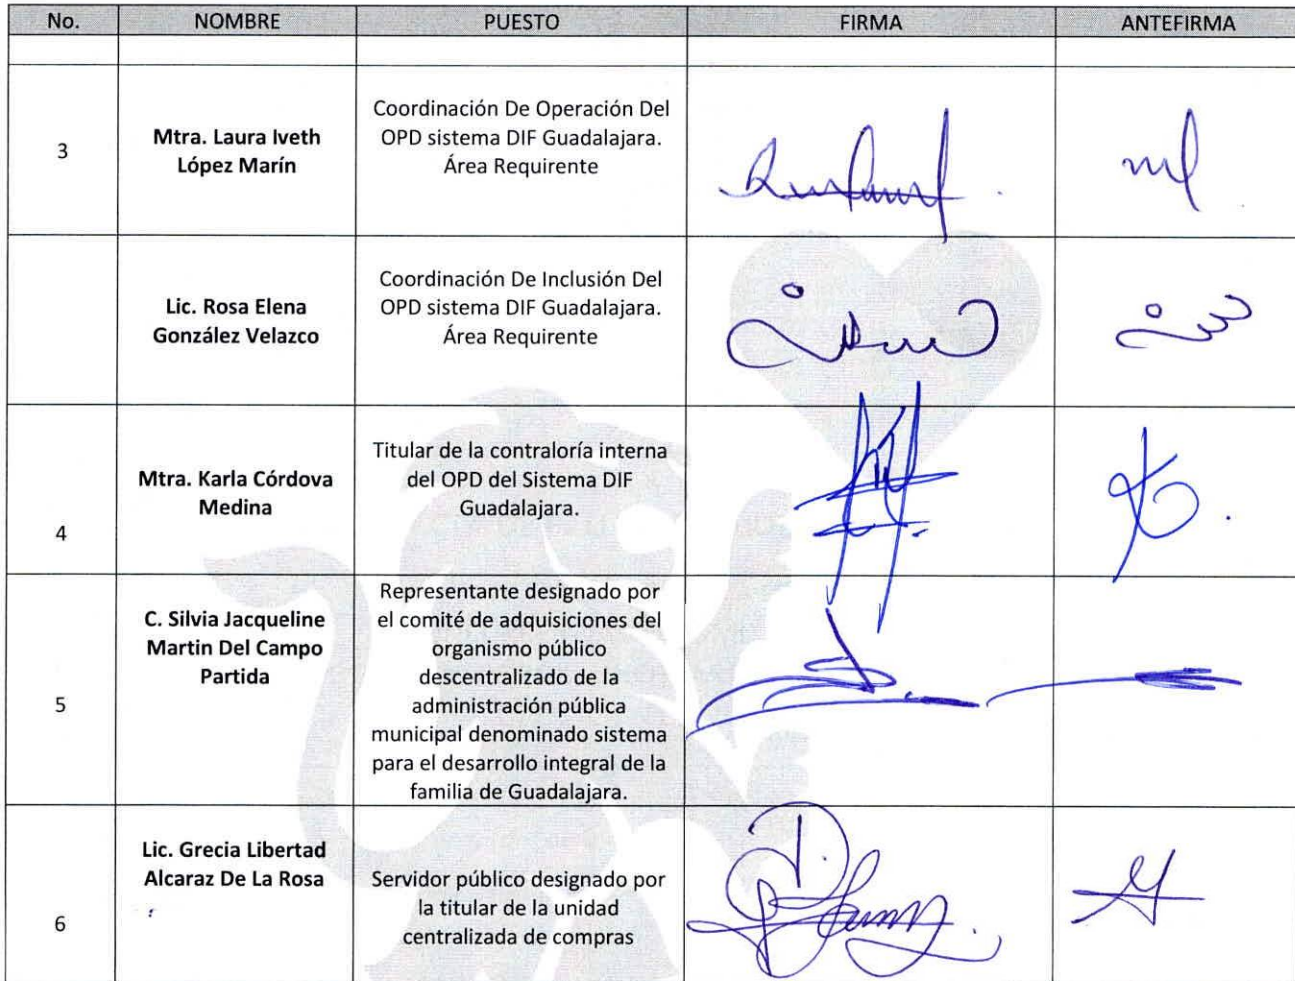 No. NOMBRE PUESTO FIRMA ANTEFIRMA
3
Mtra. Laura Iveth
López Marín
Coordinación De Operación Del
OPD sistema DIF Guadalajara.
Área Requirente
Lic. Rosa Elena
González Velazco
Coordinación De Inclusión Del
OPD sistema DIF Guadalajara.
Área Requirente
4
Mtra. Karla Córdova
Medina
Titular de la contraloría interna
del OPD del Sistema DIF
Guadalajara.
5
C. Silvia Jacqueline
Martin Del Campo
Partida
Representante designado por
el comité de adquisiciones del
organismo público
descentralizado de la
administración pública
municipal denominado sistema
para el desarrollo integral de la
familia de Guadalajara.
6
Lic. Grecia Libertad
Alcaraz De La Rosa
Servidor público designado por
la titular de la unidad
centralizada de compras